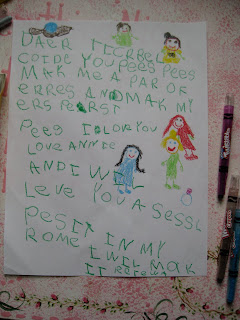 DAER TTCORBELL
COIDE YOU PEES PEES
MAK ME A PAR OF
ERRES AND MAK MY
ERS PEARST
PEES I LOVE YOU
LOVE ANNIE
AND I WIL
LEVE YOU A SESSL
PESIT IN MY
ROME I WIL MAK
IT